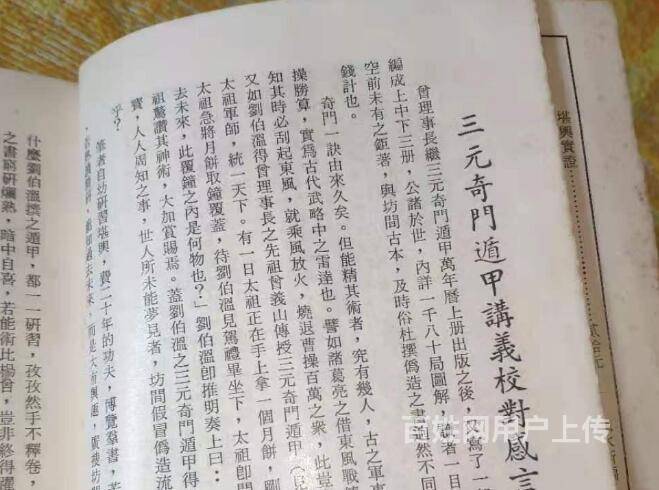 堪輿實證
三元奇門遁甲講義校對感言
曾理事長繼三元奇門遁甲萬年曆上冊出版之後，又寫了一
編成上中下三冊，公諸於世，內詳一千八十局圖解，
空前未有之鉅著，與坊間古本，及時俗杜撰偽造之書迥然不同
錢計也。
奇門一訣由來久矣。但能精其術者，究有幾人，古之軍事
操勝算，實爲古代武略中之雷達也。譬如諸葛亮之借東風戰
知其時必刮起東風，就乘風放火，燒退曹操百萬之衆，此豈
又如劉伯溫得曾理事長之先祖曾義山傳授三元奇門遁甲
太祖軍師，統一天下。有一日太祖正在手上拿一個月餅，剛
太祖急將月餅取鐘覆蓋，待劉伯溫見駕禮畢坐下，太祖卽問
去未來，此覆鐘之內是何物也？」劉伯溫卽推明奏上曰：
祖驚讚其神術，大加賞賜焉。蓋劉伯溫之三元奇門遁甲得
寶，人人周知之事，世人所未能夢見者，坊間假冒僞造流
乎？
筆者自幼研習堪輿，費二十年的功夫，博覽羣書，若
什麼劉伯溫撰之遁甲，都一一研習，孜孜然手不釋卷，
之書窮研爛熟，暗中自喜，若能術比楊曾，豈非終得
百姓网用户上传